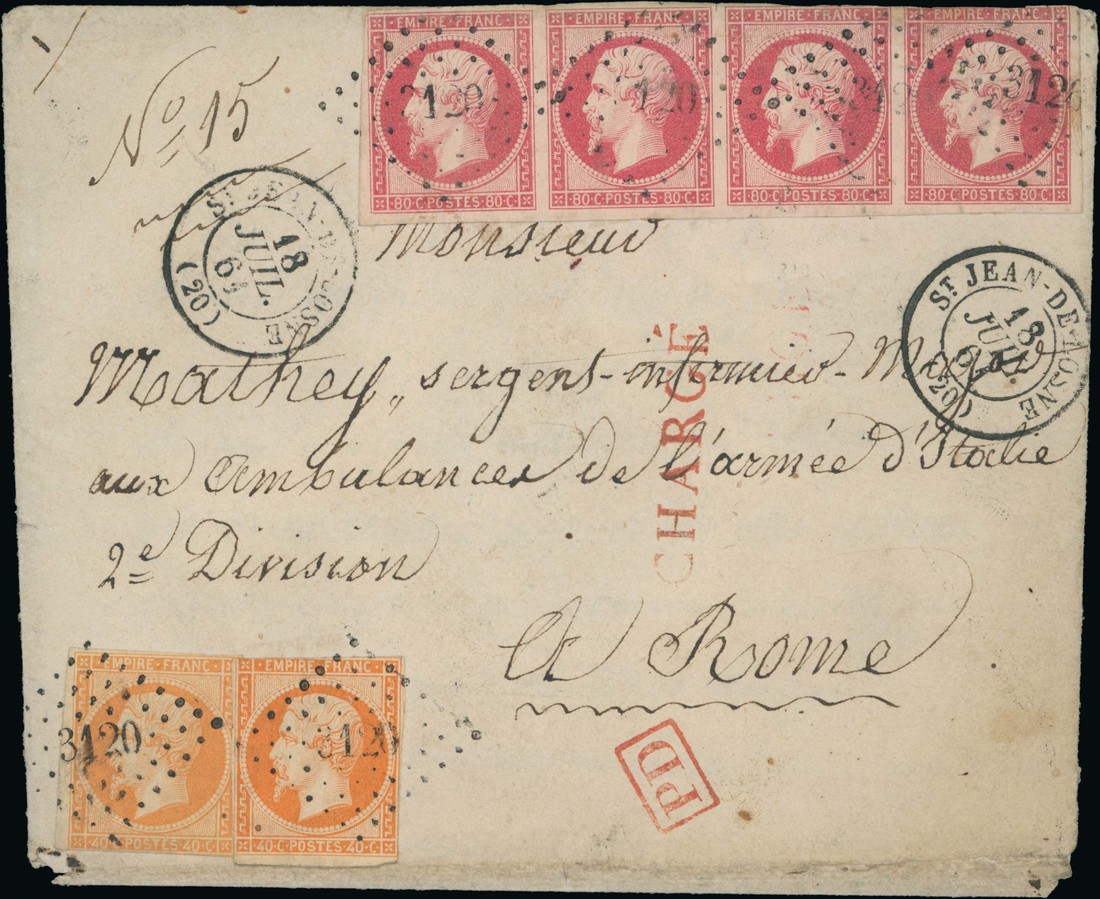 EMPIRE FRANC EMPIRE FRANC EMPIRE FRANC EMPIRE FRANC
3120 120 312 3120
80·C·POSTES·80·C 80·C·POSTES·80·C 80·C·POSTES·80·C 80·C·POSTES·80·C
No 15
ST JEAN-DE-LOSNE
18
JUIL.
61
(20)
ST JEAN-DE-LOSNE
18
JUIL.
(20)
Monsieur
Mathey, sergent-infirmier-Major
aux ambulances de l'armée d'Italie
2e Division
A Rome
CHARGÉ
EMPIRE FRANC EMPIRE FRANC
3120 3120
40·C·POSTES·40·C 40·C·POSTES·40·C
PD